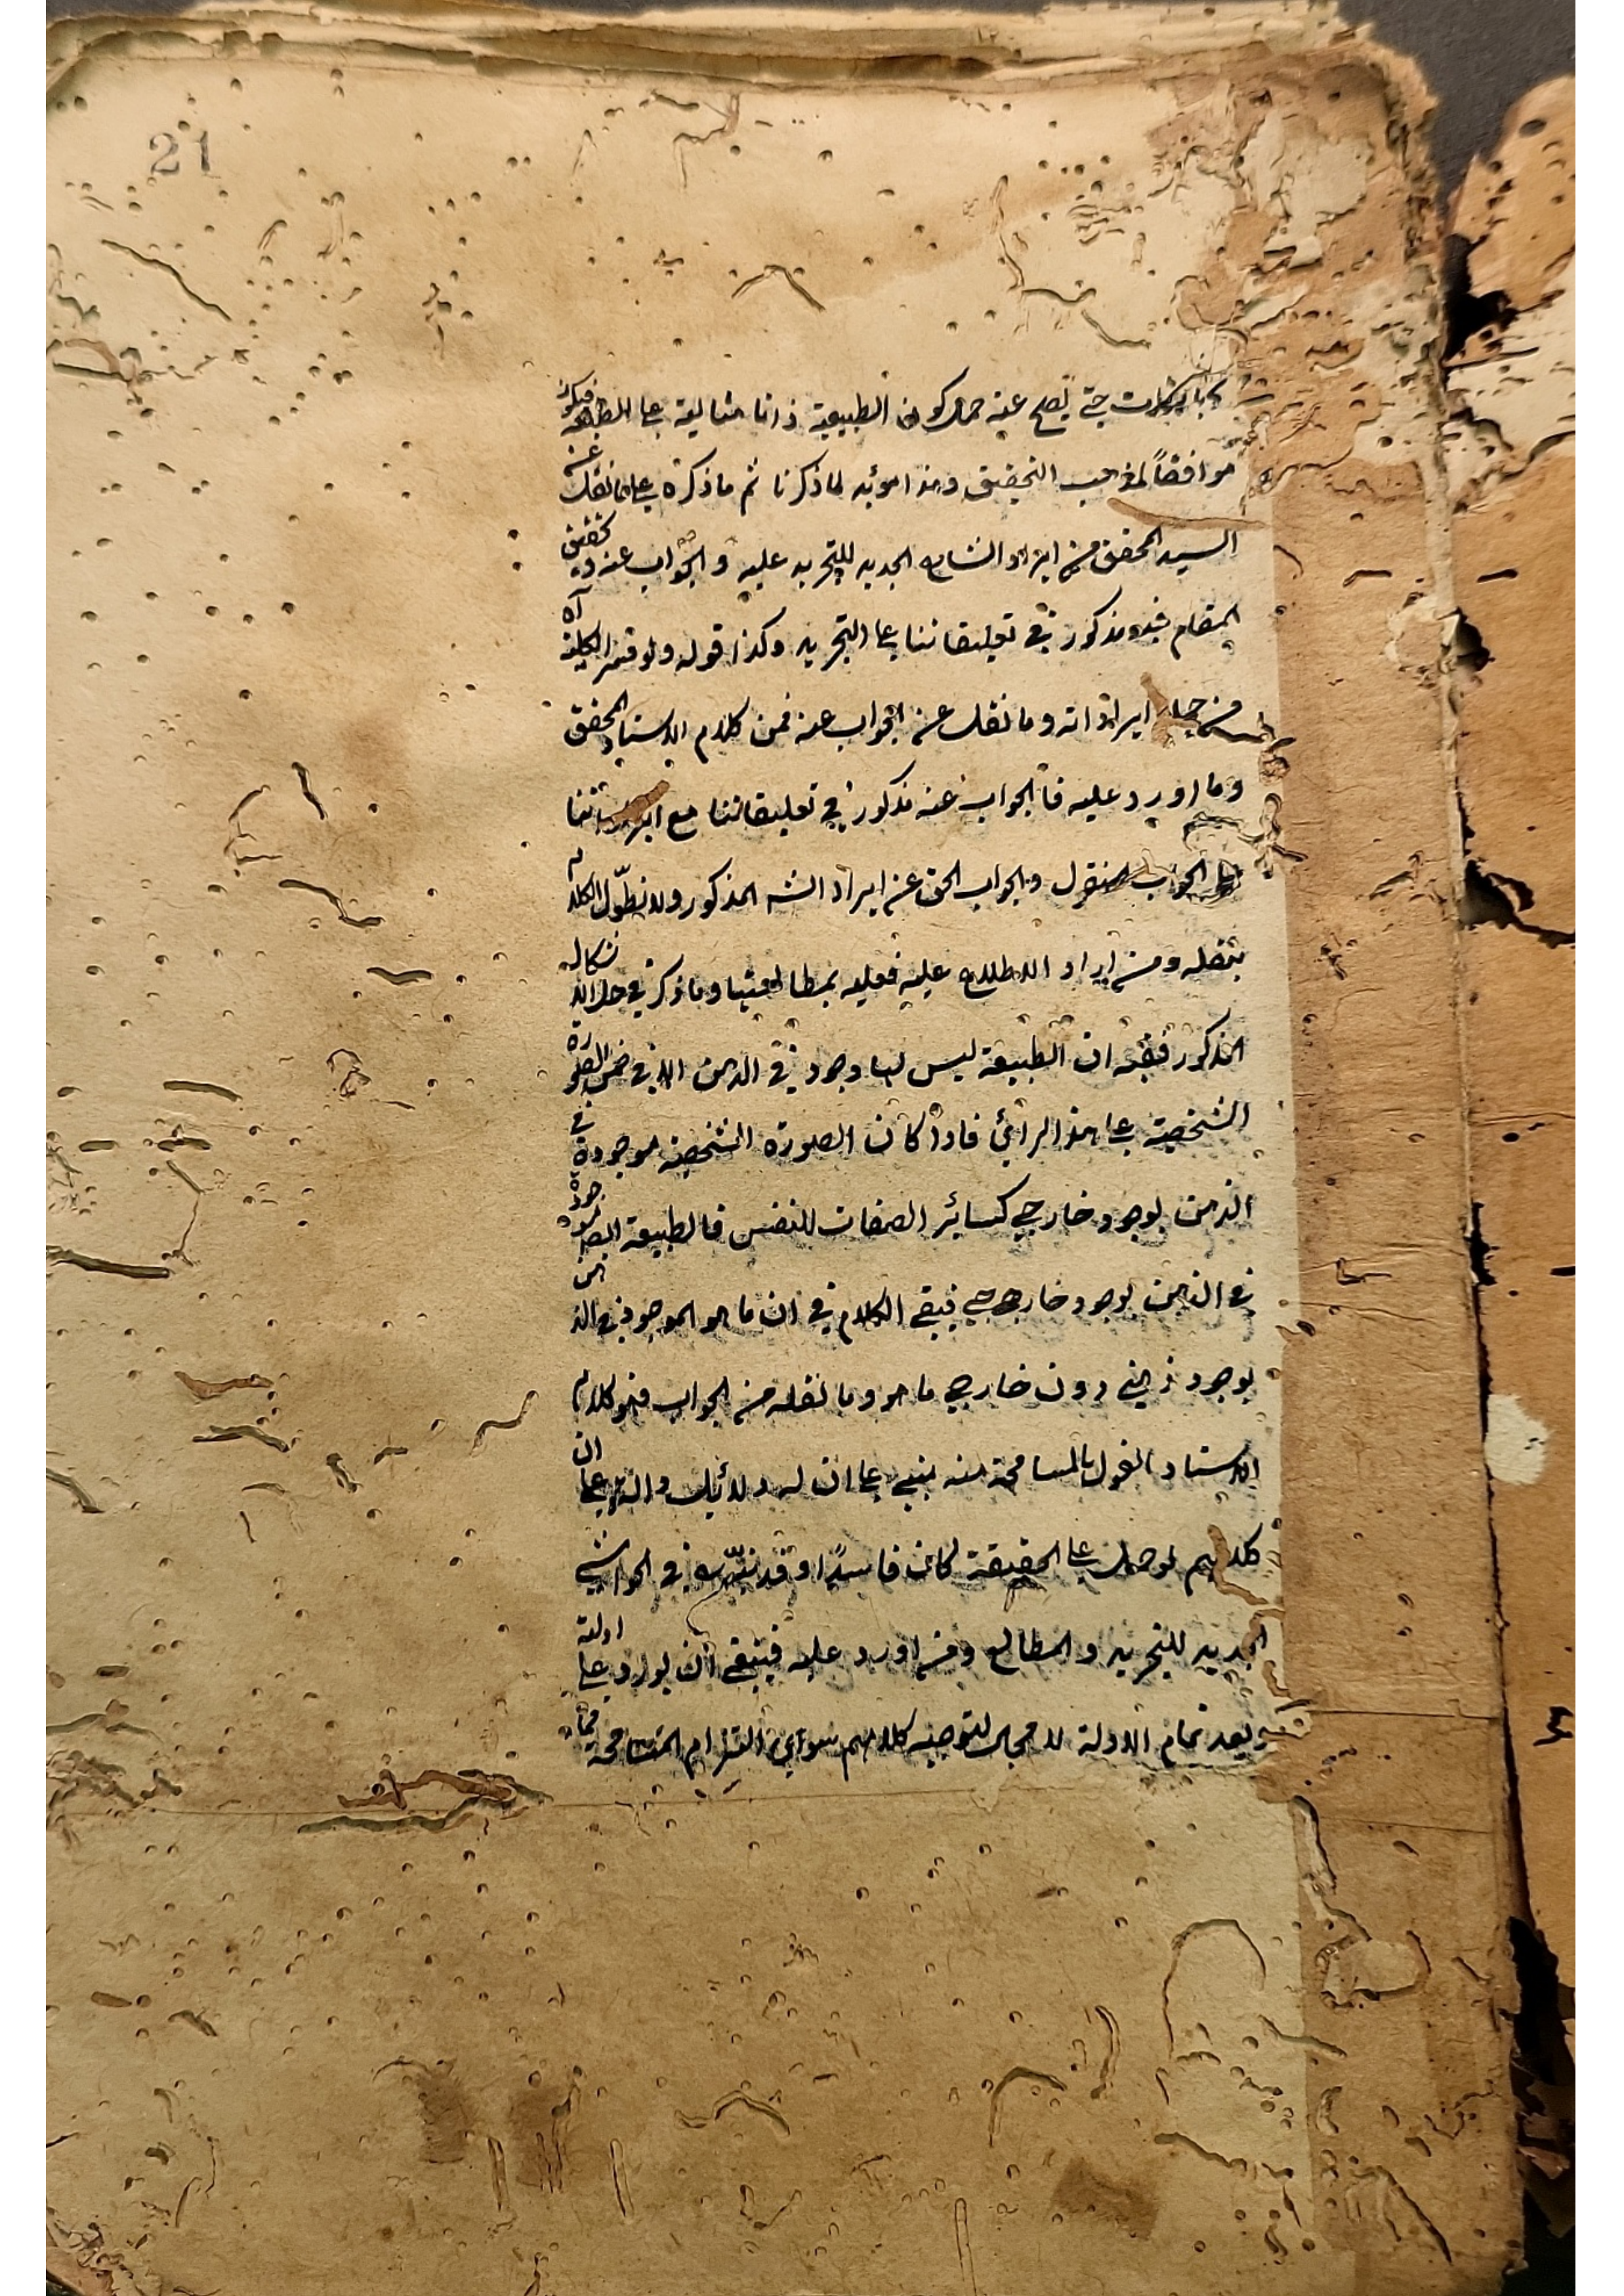 21
حتى يصح عنه حمل كون الطبيعة ذاتا مثالية على المطابقة فيكون
موافقاً لمذهب التحقيق وهذا مويد لما ذكرنا ثم ما ذكره على ما نقل عنه
السيد المحقق من ايراد الشارح الجديد للتجريد عليه والجواب عنه وتحقيق
المقام فيه مذكور في تعليقاتنا على التجريد وكذا قوله ولو قيد الكلية آه
من جملة ايراداته وما نقل عنه الجواب عنه فمن كلام الاستاد المحقق
وما اورد عليه فالجواب عنه مذكور في تعليقاتنا مع ايراداتنا
على الجواب المنقول والجواب الحق عن ايراد الشه المذكور ولا نطوّل الكلام
بنقله ومن اراد الاطلاع عليه فعليه بمطالعتها وما ذكر في حل الاشكال
المذكور ففيه ان الطبيعة ليس لها وجود في الذهن الا في ضمن الصورة
الشخصية على هذا الرأي فاذا كان الصورة الشخصية موجودة في
الذهن بوجود خارجي كسائر الصفات للنفس فالطبيعة ايضا موجودة
في الذهن بوجود خارجي فبقي الكلام في ان ما هو الموجود في الذهن
بوجود ذهني دون خارجي ما هو وما نقله من الجواب فهو كلام
الاستاد القول بالمسامحة منه مبني على ان له دلائل دالة على ان
كلامهم لو حمل على الحقيقة لكان فاسداً وقد بيّنه في الحواشي
الجديد للتجريد والمطالع ومن اورد عليه فينبغي ان يورد على ادلته
وبعد تمام الادلة لا مجال لتوجيه كلامهم سوى التزام المسامحة فيما